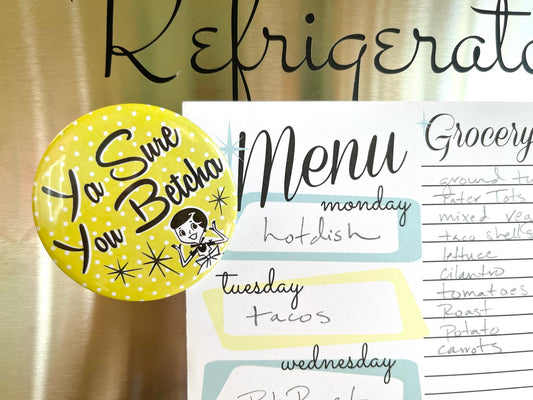 Refrigerato
Ya Sure
You Betcha
Menu
monday
hotdish
tuesday
tacos
wednesday
Grocery
ground tu
Tater Tots
mixed veg
taco shells
lettuce
cilantro
tomatoes
Roast
Potato
carrots